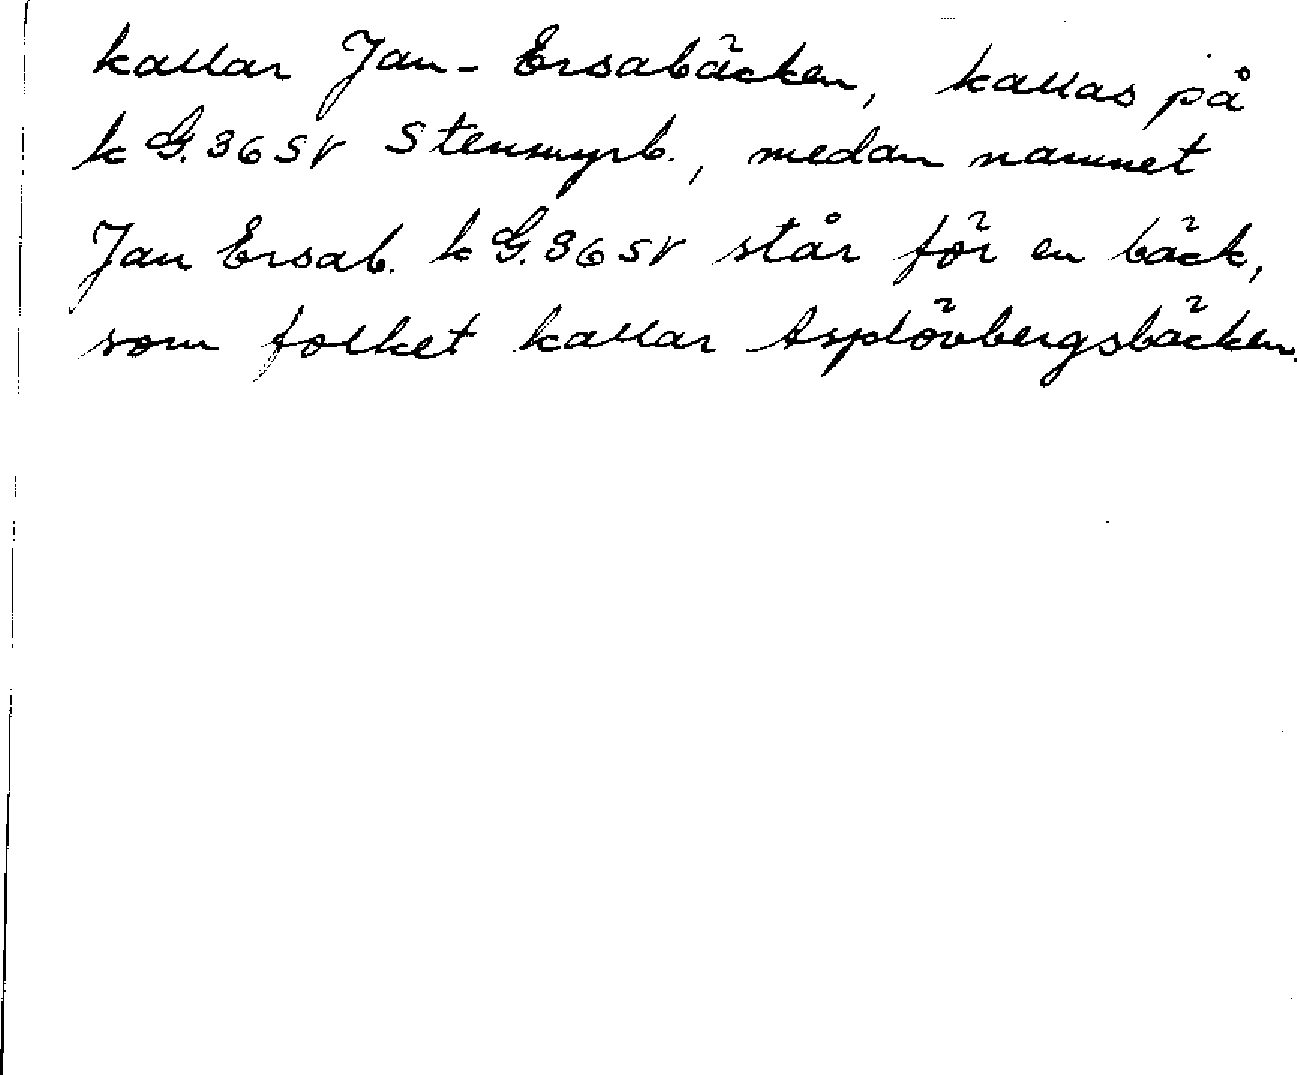 kallar Jan-Ersabäcken, kallas på
k G. 36 SV Stenmyrb., medan namnet
Jan Ersab. k G. 36 SV står för en bäck,
som folket kallar Asplövbergsbäcken.